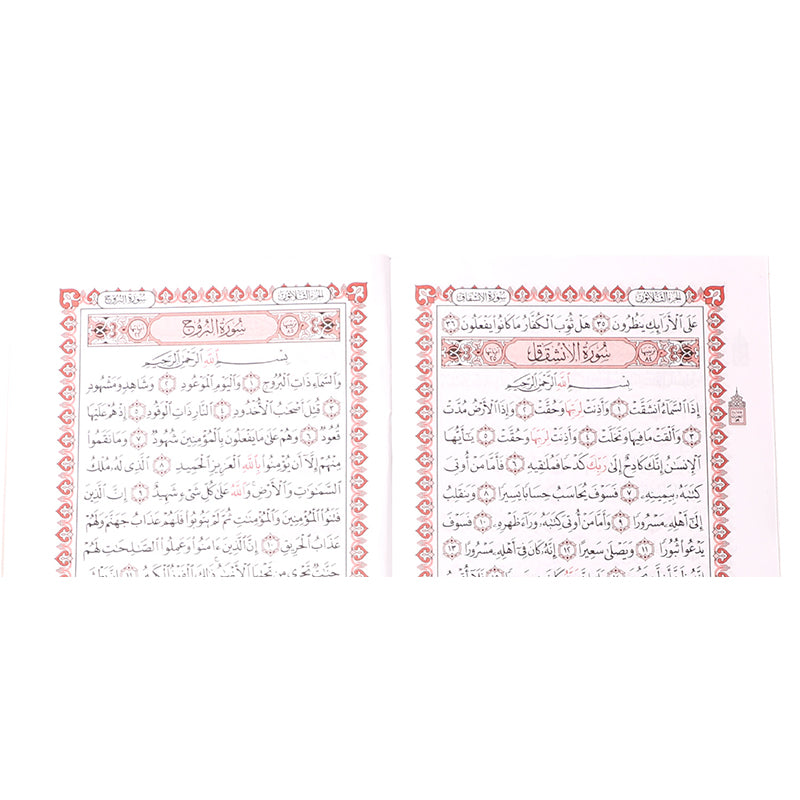 سورة الانشقاق
الجزء الثلاثون
عَلَى ٱلْأَرَآئِكِ يَنظُرُونَ ٣٥ هَلْ ثُوِّبَ ٱلْكُفَّارُ مَا كَانُوا۟ يَفْعَلُونَ ٣٦
سُورَةُ الانشِقَاقِ
بِسْمِ ٱللَّهِ ٱلرَّحْمَٰنِ ٱلرَّحِيمِ
إِذَا ٱلسَّمَآءُ ٱنشَقَّتْ ١ وَأَذِنَتْ لِرَبِّهَا وَحُقَّتْ ٢ وَإِذَا ٱلْأَرْضُ مُدَّتْ
٣ وَأَلْقَتْ مَا فِيهَا وَتَخَلَّتْ ٤ وَأَذِنَتْ لِرَبِّهَا وَحُقَّتْ ٥ يَٰٓأَيُّهَا
ٱلْإِنسَٰنُ إِنَّكَ كَادِحٌ إِلَىٰ رَبِّكَ كَدْحًا فَمُلَٰقِيهِ ٦ فَأَمَّا مَنْ أُوتِىَ
كِتَٰبَهُۥ بِيَمِينِهِۦ ٧ فَسَوْفَ يُحَاسَبُ حِسَابًا يَسِيرًا ٨ وَيَنقَلِبُ
إِلَىٰٓ أَهْلِهِۦ مَسْرُورًا ٩ وَأَمَّا مَنْ أُوتِىَ كِتَٰبَهُۥ وَرَآءَ ظَهْرِهِۦ ١٠ فَسَوْفَ
يَدْعُوا۟ ثُبُورًا ١١ وَيَصْلَىٰ سَعِيرًا ١٢ إِنَّهُۥ كَانَ فِىٓ أَهْلِهِۦ مَسْرُورًا ١٣
سورة البروج
الجزء الثلاثون
سُورَةُ البُرُوجِ
بِسْمِ ٱللَّهِ ٱلرَّحْمَٰنِ ٱلرَّحِيمِ
وَٱلسَّمَآءِ ذَاتِ ٱلْبُرُوجِ ١ وَٱلْيَوْمِ ٱلْمَوْعُودِ ٢ وَشَاهِدٍ وَمَشْهُودٍ
٣ قُتِلَ أَصْحَٰبُ ٱلْأُخْدُودِ ٤ ٱلنَّارِ ذَاتِ ٱلْوَقُودِ ٥ إِذْ هُمْ عَلَيْهَا
قُعُودٌ ٦ وَهُمْ عَلَىٰ مَا يَفْعَلُونَ بِٱلْمُؤْمِنِينَ شُهُودٌ ٧ وَمَا نَقَمُوا۟
مِنْهُمْ إِلَّآ أَن يُؤْمِنُوا۟ بِٱللَّهِ ٱلْعَزِيزِ ٱلْحَمِيدِ ٨ ٱلَّذِى لَهُۥ مُلْكُ
ٱلسَّمَٰوَٰتِ وَٱلْأَرْضِ وَٱللَّهُ عَلَىٰ كُلِّ شَىْءٍ شَهِيدٌ ٩ إِنَّ ٱلَّذِينَ
فَتَنُوا۟ ٱلْمُؤْمِنِينَ وَٱلْمُؤْمِنَٰتِ ثُمَّ لَمْ يَتُوبُوا۟ فَلَهُمْ عَذَابُ جَهَنَّمَ وَلَهُمْ
عَذَابُ ٱلْحَرِيقِ ١٠ إِنَّ ٱلَّذِينَ ءَامَنُوا۟ وَعَمِلُوا۟ ٱلصَّٰلِحَٰتِ لَهُمْ
جَنَّٰتٌ تَجْرِى مِن تَحْتِهَا ٱلْأَنْهَٰرُ ذَٰلِكَ ٱلْفَوْزُ ٱلْكَبِيرُ ١١